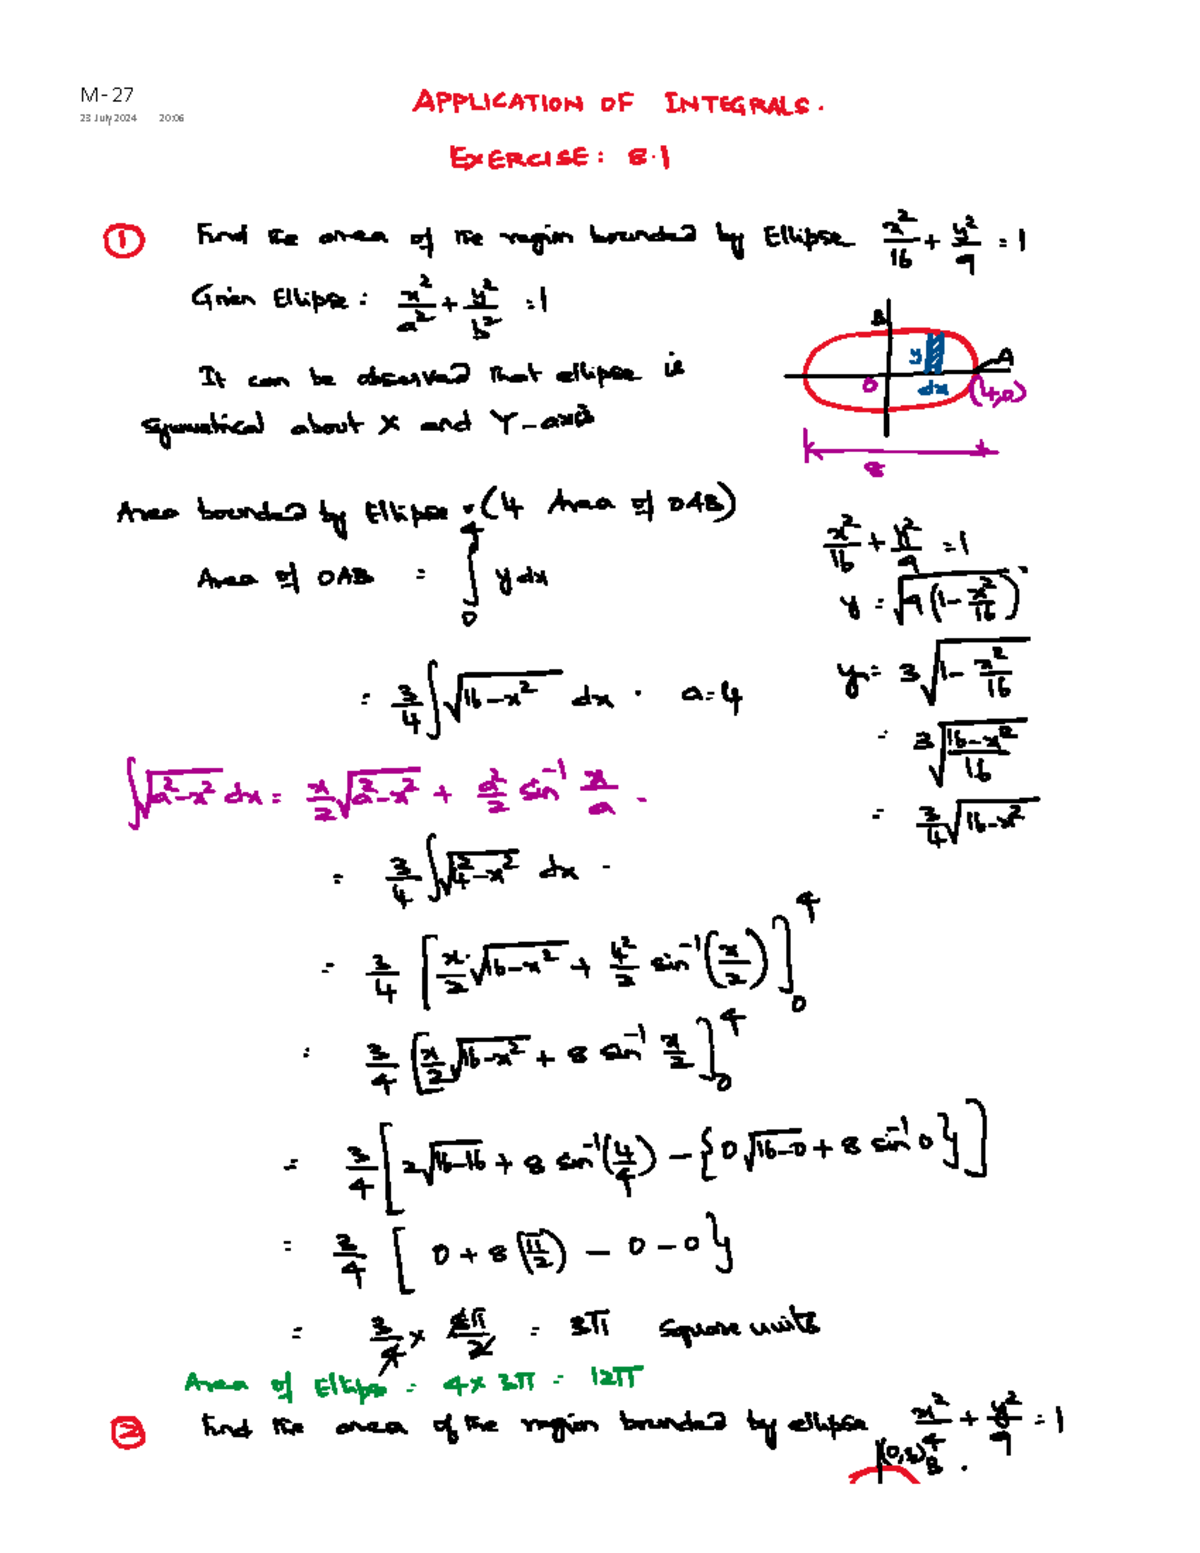 M-27
23 July 2024 20:06
APPLICATION OF INTEGRALS.
EXERCISE: 8.1
① Find the area of the region bounded by Ellipse x²/16 + y²/9 = 1
Given Ellipse: x²/a² + y²/b² = 1
B
y
A
O
dx
(4,0)
8
It can be observed that ellipse is
symmetrical about X and Y-axis
Area bounded by Ellipse = (4 Area of OAB)
Area of OAB = ∫₀⁴ y dx
x²/16 + y²/9 = 1
y = √(9(1-x²/16))
y = 3√(1-x²/16)
= 3√((16-x²)/16)
= 3/4 √(16-x²)
= 3/4 ∫√(16-x²) dx . a=4
∫√(a²-x²) dx = x/2 √(a²-x²) + a²/2 sin⁻¹ x/a .
= 3/4 ∫√(4²-x²) dx
= 3/4 [x/2 √(16-x²) + 4²/2 sin⁻¹(x/2)]₀⁴
= 3/4 [x/2 √(16-x²) + 8 sin⁻¹ x/2]₀⁴
= 3/4 [2√(16-16) + 8 sin⁻¹(4/4) - {0√(16-0) + 8 sin⁻¹ 0}]
= 3/4 [0 + 8(π/2) - 0 - 0}
= 3/4 × 8π/2 = 3π Square units
Area of Ellipse = 4 × 3π = 12π
② Find the area of the region bounded by ellipse x²/4 + y²/9 = 1
(0,3)
B